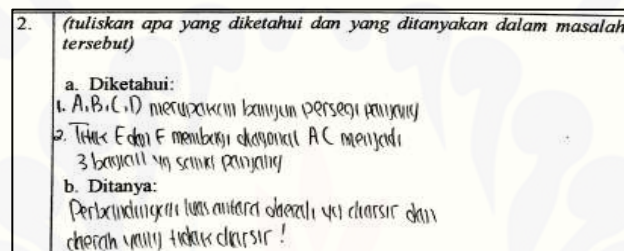 2. (tuliskan apa yang diketahui dan yang ditanyakan dalam masalah
tersebut)
a. Diketahui:
1. A,B,C,D merupakan bangun persegi panjang
2. Titik E dan F membagi diagonal AC menjadi
3 bagian yg sama panjang
b. Ditanya:
Perbandingan luas antara daerah yg diarsir dan
daerah yang tidak diarsir !